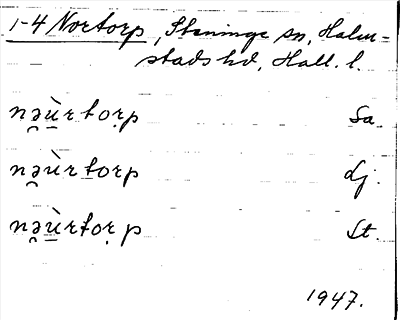 1-4 Nortorp, Steninge sn, Halm-
stads hd, Hall. l.
nə̯ù̱rtọrp Sa.
nə̯ù̱rtọrp Lj.
nə̯ù̱rtọrp St.
1947.